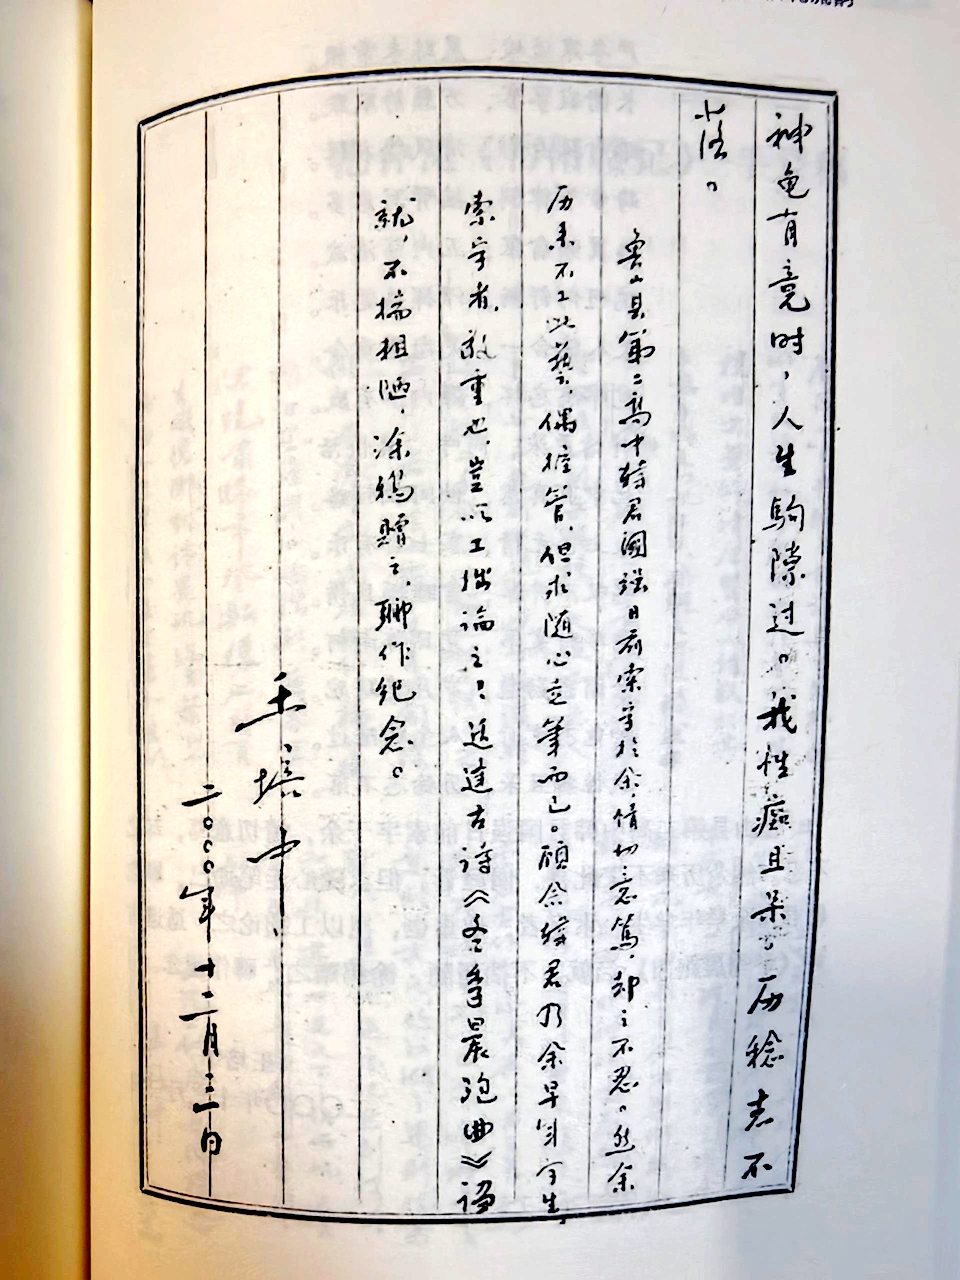 神龟有竟时，人生驹隙过。我性痴且呆，历稔志不
落。
鲁山县第二高中韩君国强日前索字于余，情切意笃，却之不忍。然余
历来不工此艺，偶握管，但求随心走笔而已。顾念韩君乃余早年学生，
索字者，敬重也，岂以工拙论之？适逢古诗《冬季晨跑曲》诌
就，不揣粗陋，涂鸦赠之，聊作纪念。
王培中
二〇〇〇年十二月三日